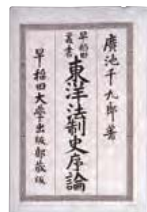 廣池千九郎著
早稻田叢書
東洋法制史序論
早稻田大學出版部藏版